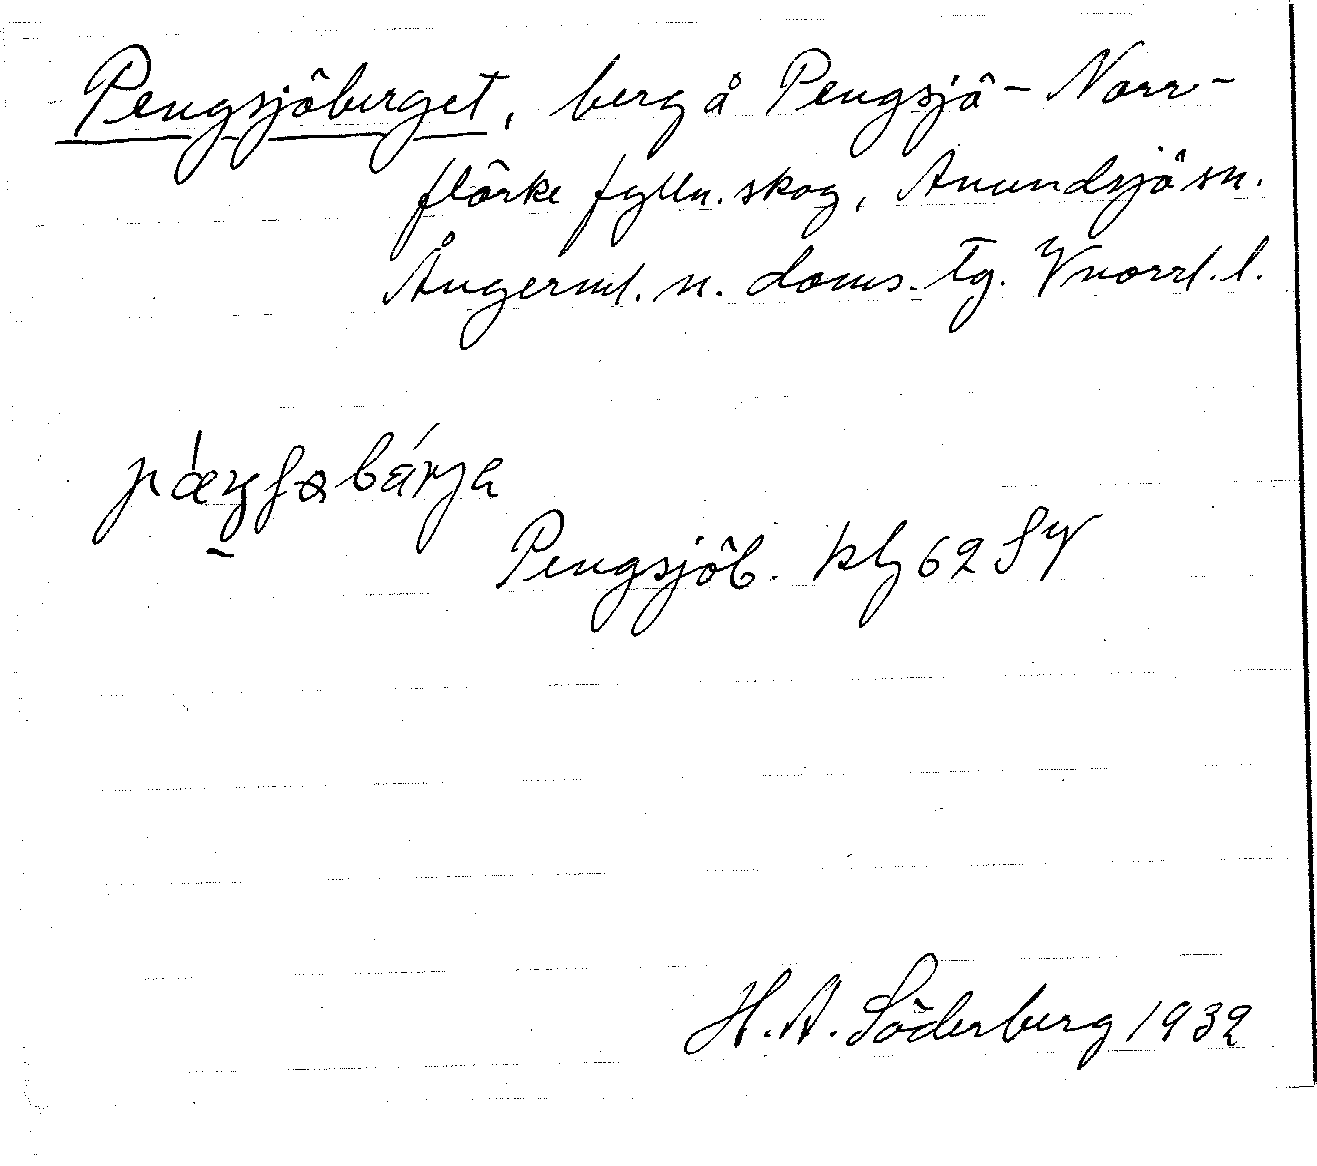 Pengsjöberget, berg å Pengsjö - Norr-
flärke fylln. skog, Anundsjö sn.
Ångerml. n. doms. tg. Vnorrl. l.
Pengsjöb. kbl 62 SV
H. A. Söderberg 1932